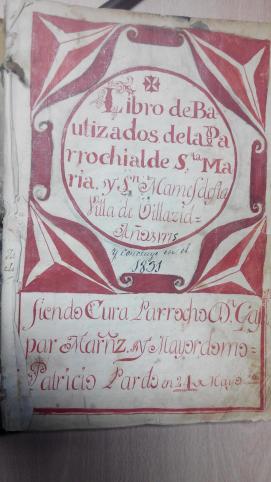 Libro de Ba
utizados de la Pa
rrochial de S.ta Ma
ria, y S.n Mames de sta
Villa de Villazid=
Año
y concluye en el
1851
siendo Cura Parrocho D.n Gas
par Mařnz. y Mayordomo=
Patricio Pardo en 21 de Mayo